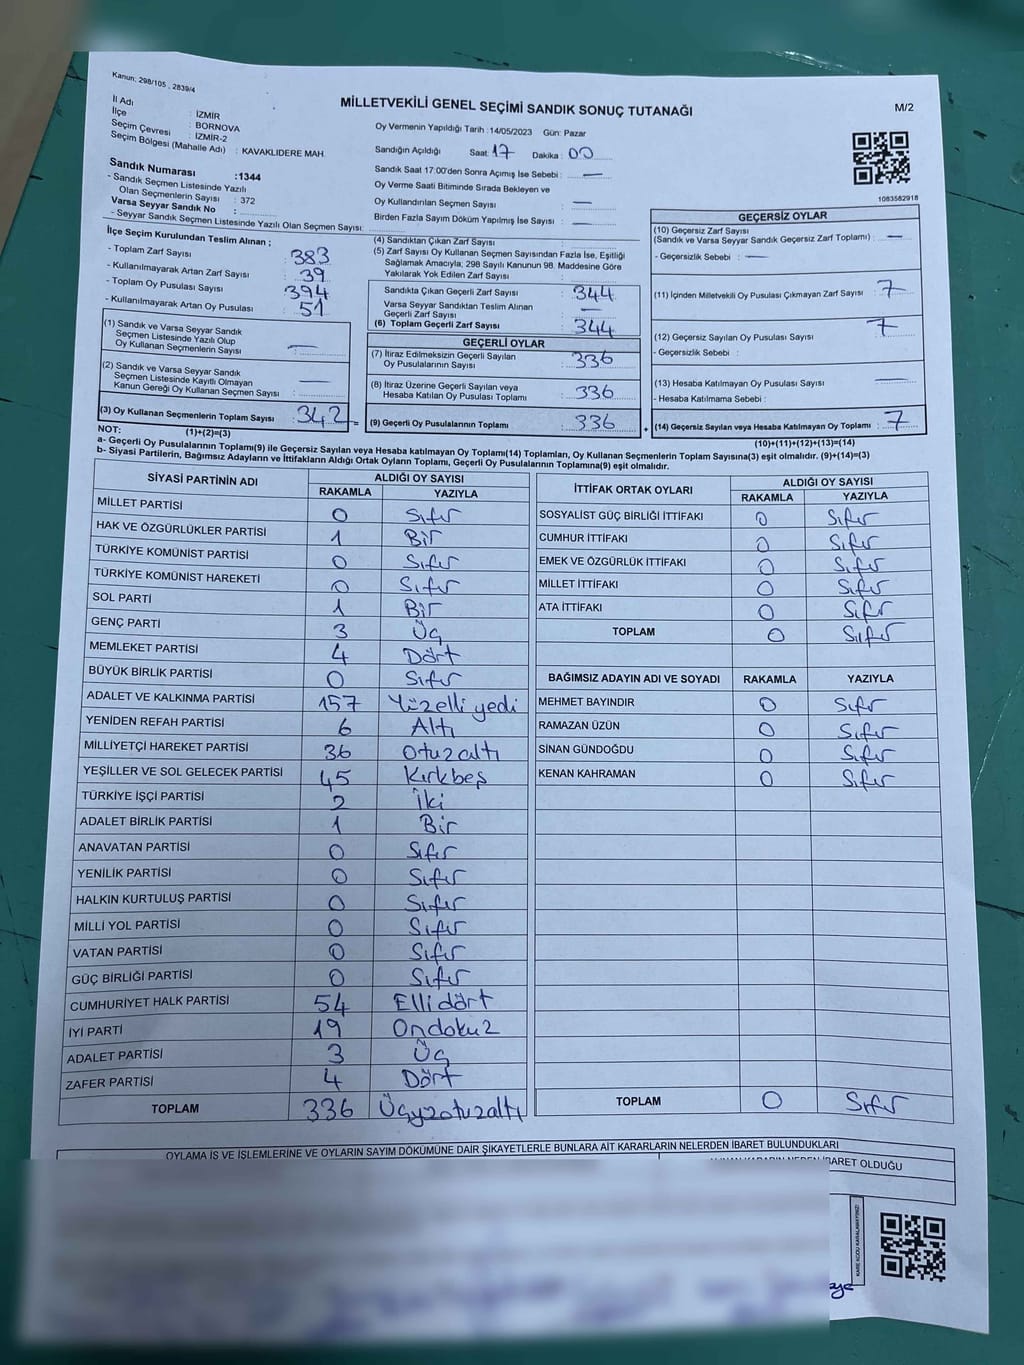 Kanun: 298/105 , 2839/4
MİLLETVEKİLİ GENEL SEÇİMİ SANDIK SONUÇ TUTANAĞI
M/2
İl Adı : İZMİR
İlçe : BORNOVA
Seçim Çevresi : İZMİR-2
Seçim Bölgesi (Mahalle Adı) : KAVAKLIDERE MAH.
Sandık Numarası :1344
- Sandık Seçmen Listesinde Yazılı
Olan Seçmenlerin Sayısı : 372
Varsa Seyyar Sandık No :
- Seyyar Sandık Seçmen Listesinde Yazılı Olan Seçmen Sayısı:
Oy Vermenin Yapıldığı Tarih :14/05/2023 Gün: Pazar
Sandığın Açıldığı Saat: 17 Dakika : 00
Sandık Saat 17:00'den Sonra Açımış İse Sebebi : —
Oy Verme Saati Bitiminde Sırada Bekleyen ve
Oy Kullandırılan Seçmen Sayısı : —
Birden Fazla Sayım Döküm Yapılmış İse Sayısı : —
1083582918
İlçe Seçim Kurulundan Teslim Alınan ;
- Toplam Zarf Sayısı : 383
- Kullanılmayarak Artan Zarf Sayısı : 39
- Toplam Oy Pusulası Sayısı : 394
- Kullanılmayarak Artan Oy Pusulası : 51
(1) Sandık ve Varsa Seyyar Sandık
Seçmen Listesinde Yazılı Olup
Oy Kullanan Seçmenlerin Sayısı : —
(2) Sandık ve Varsa Seyyar Sandık
Seçmen Listesinde Kayıtlı Olmayan
Kanun Gereği Oy Kullanan Seçmen Sayısı : —
(3) Oy Kullanan Seçmenlerin Toplam Sayısı : 342 =
(1)+(2)=(3)
(4) Sandıktan Çıkan Zarf Sayısı :
(5) Zarf Sayısı Oy Kullanan Seçmen Sayısından Fazla İse, Eşitliği
Sağlamak Amacıyla; 298 Sayılı Kanunun 98. Maddesine Göre
Yakılarak Yok Edilen Zarf Sayısı :
Sandıkta Çıkan Geçerli Zarf Sayısı : 344
Varsa Seyyar Sandıktan Teslim Alınan
Geçerli Zarf Sayısı : —
(6) Toplam Geçerli Zarf Sayısı : 344
GEÇERLİ OYLAR
(7) İtiraz Edilmeksizin Geçerli Sayılan
Oy Pusulalarının Sayısı : 336
(8) İtiraz Üzerine Geçerli Sayılan veya
Hesaba Katılan Oy Pusulası Toplamı : 336
(9) Geçerli Oy Pusulalarının Toplamı : 336 +
GEÇERSİZ OYLAR
(10) Geçersiz Zarf Sayısı
(Sandık ve Varsa Seyyar Sandık Geçersiz Zarf Toplamı) : —
- Geçersizlik Sebebi : —
(11) İçinden Milletvekili Oy Pusulası Çıkmayan Zarf Sayısı : 7
(12) Geçersiz Sayılan Oy Pusulası Sayısı : 7
- Geçersizlik Sebebi :
(13) Hesaba Katılmayan Oy Pusulası Sayısı : —
- Hesaba Katılmama Sebebi :
(14) Geçersiz Sayılan veya Hesaba Katılmayan Oy Toplamı : 7
(10)+(11)+(12)+(13)=(14)
NOT:
a- Geçerli Oy Pusulalarının Toplamı(9) ile Geçersiz Sayılan veya Hesaba katılmayan Oy Toplamı(14) Toplamları, Oy Kullanan Seçmenlerin Toplam Sayısına(3) eşit olmalıdır. (9)+(14)=(3)
b- Siyasi Partilerin, Bağımsız Adayların ve İttifakların Aldığı Ortak Oyların Toplamı, Geçerli Oy Pusulalarının Toplamına(9) eşit olmalıdır.
SİYASİ PARTİNİN ADI ALDIĞI OY SAYISI
RAKAMLA YAZIYLA
MİLLET PARTİSİ 0 Sıfır
HAK VE ÖZGÜRLÜKLER PARTİSİ 1 Bir
TÜRKİYE KOMÜNİST PARTİSİ 0 Sıfır
TÜRKİYE KOMÜNİST HAREKETİ 0 Sıfır
SOL PARTİ 1 Bir
GENÇ PARTİ 3 Üç
MEMLEKET PARTİSİ 4 Dört
BÜYÜK BİRLİK PARTİSİ 0 Sıfır
ADALET VE KALKINMA PARTİSİ 157 Yüzelli yedi
YENİDEN REFAH PARTİSİ 6 Altı
MİLLİYETÇİ HAREKET PARTİSİ 36 otuzaltı
YEŞİLLER VE SOL GELECEK PARTİSİ 45 Kırkbeş
TÜRKİYE İŞÇİ PARTİSİ 2 İki
ADALET BİRLİK PARTİSİ 1 Bir
ANAVATAN PARTİSİ 0 Sıfır
YENİLİK PARTİSİ 0 Sıfır
HALKIN KURTULUŞ PARTİSİ 0 Sıfır
MİLLİ YOL PARTİSİ 0 Sıfır
VATAN PARTİSİ 0 Sıfır
GÜÇ BİRLİĞİ PARTİSİ 0 Sıfır
CUMHURİYET HALK PARTİSİ 54 Elli dört
İYİ PARTİ 19 Ondokuz
ADALET PARTİSİ 3 Üç
ZAFER PARTİSİ 4 Dört
TOPLAM 336 Üçyzotuzaltı
İTTİFAK ORTAK OYLARI ALDIĞI OY SAYISI
RAKAMLA YAZIYLA
SOSYALİST GÜÇ BİRLİĞİ İTTİFAKI 0 Sıfır
CUMHUR İTTİFAKI 0 Sıfır
EMEK VE ÖZGÜRLÜK İTTİFAKI 0 Sıfır
MİLLET İTTİFAKI 0 Sıfır
ATA İTTİFAKI 0 Sıfır
TOPLAM 0 Sıfır
BAĞIMSIZ ADAYIN ADI VE SOYADI RAKAMLA YAZIYLA
MEHMET BAYINDIR 0 Sıfır
RAMAZAN ÜZÜN 0 Sıfır
SİNAN GÜNDOĞDU 0 Sıfır
KENAN KAHRAMAN 0 Sıfır
TOPLAM 0 Sıfır
OYLAMA İŞ VE İŞLEMLERİNE VE OYLARIN SAYIM DÖKÜMÜNE DAİR ŞİKAYETLERLE BUNLARA AİT KARARLARIN NELERDEN İBARET BULUNDUKLARI
İBARET OLDUĞU
KARE KODU KARALAMAYINIZ!